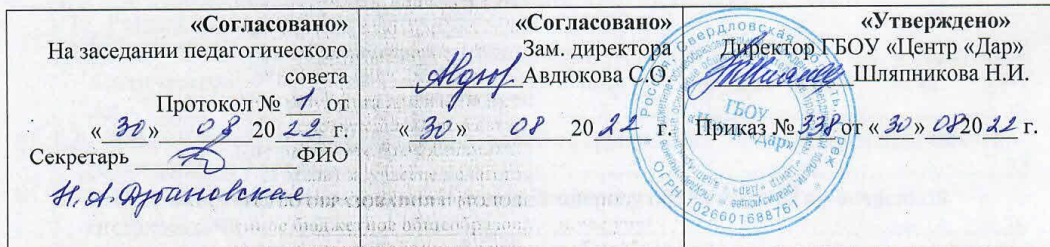 «Согласовано»
На заседании педагогического
совета
Протокол № 1 от
«30» 08 2022 г.
Секретарь ФИО
«Согласовано»
Зам. директора
Авдюкова С.О.
«30» 08 2022 г.
«Утверждено»
Директор ГБОУ «Центр «Дар»
Шляпникова Н.И.
Приказ № 338 от «30» 082022 г.
ГБОУ
«Центр «Дар»
ОГРН 1026601688751